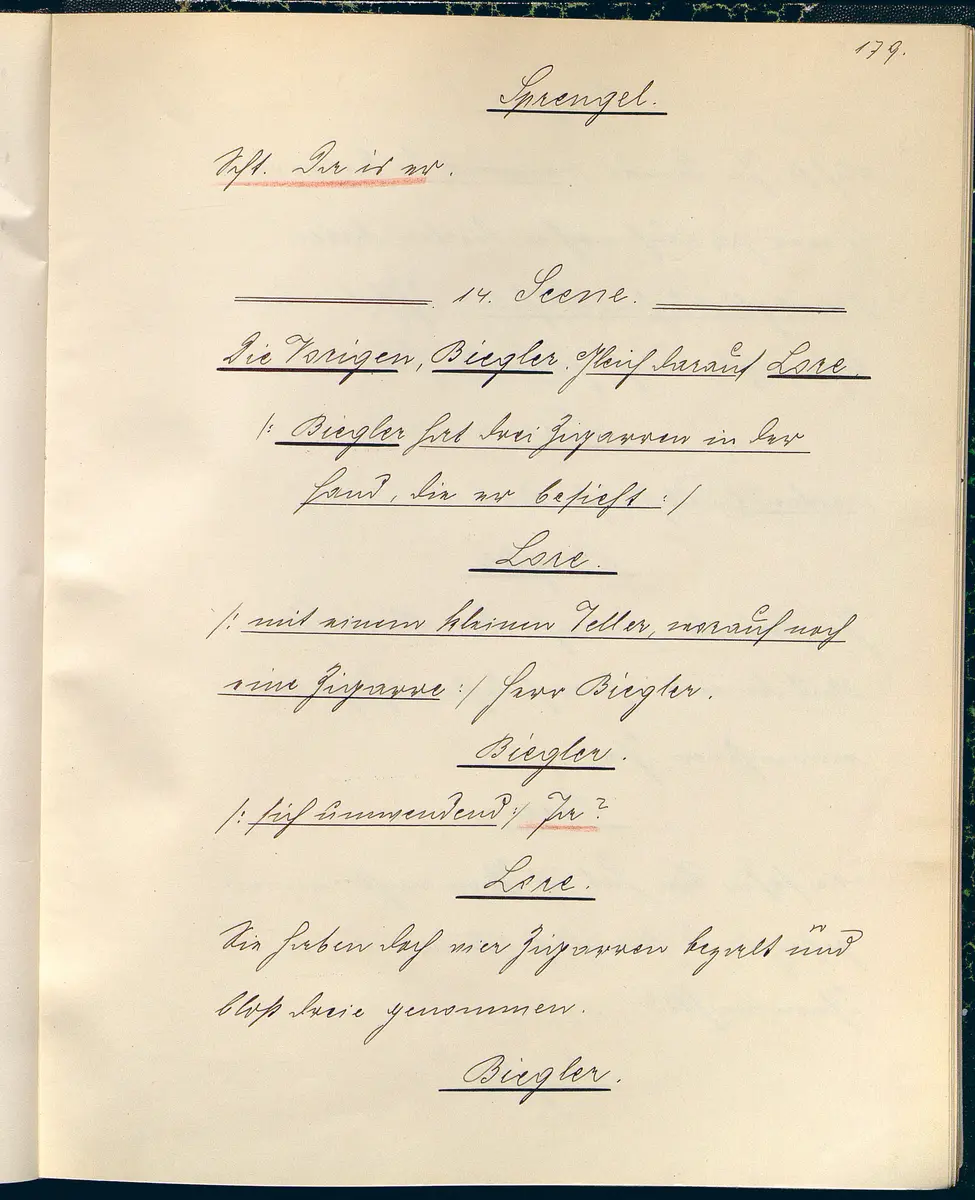 179.
Sprengel.
Scht. Da is er.
14. Scene.
Die Vorigen, Biegler. Gleich darauf Lore.
/: Biegler hat drei Zigarren in der
Hand, die er besieht :/
Lore.
/: mit einem kleinen Teller, worauf noch
eine Zigarre :/ Herr Biegler.
Biegler.
/: sich umwendend :/ Ja?
Lore.
Sie haben doch vier Zigarren bezalt und
bloß dreie genommen.
Biegler.